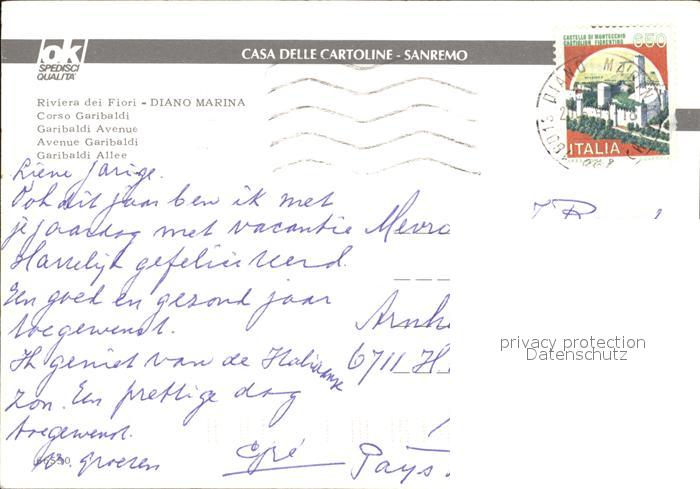 ok
SPEDISCI
QUALITA'
CASA DELLE CARTOLINE - SANREMO
CASTELLO DI MONTECCHIO
CASTIGLION FIORENTINO
650
ITALIA
DIANO MARINA
18013
Riviera dei Fiori - DIANO MARINA
Corso Garibaldi
Garibaldi Avenue
Avenue Garibaldi
Garibaldi Allee
Lieve Jarige.
Ook dit jaar ben ik met
je jaardag met vacantie
Hartelijk gefeliciteerd.
Een goed en gezond jaar
toegewenst.
Ik geniet van de Italiaanse
zon. Een prettige dag
toegewenst.
groeten
Mevro
Arnh
6711 H
Pays.
privacy protection
Datenschutz